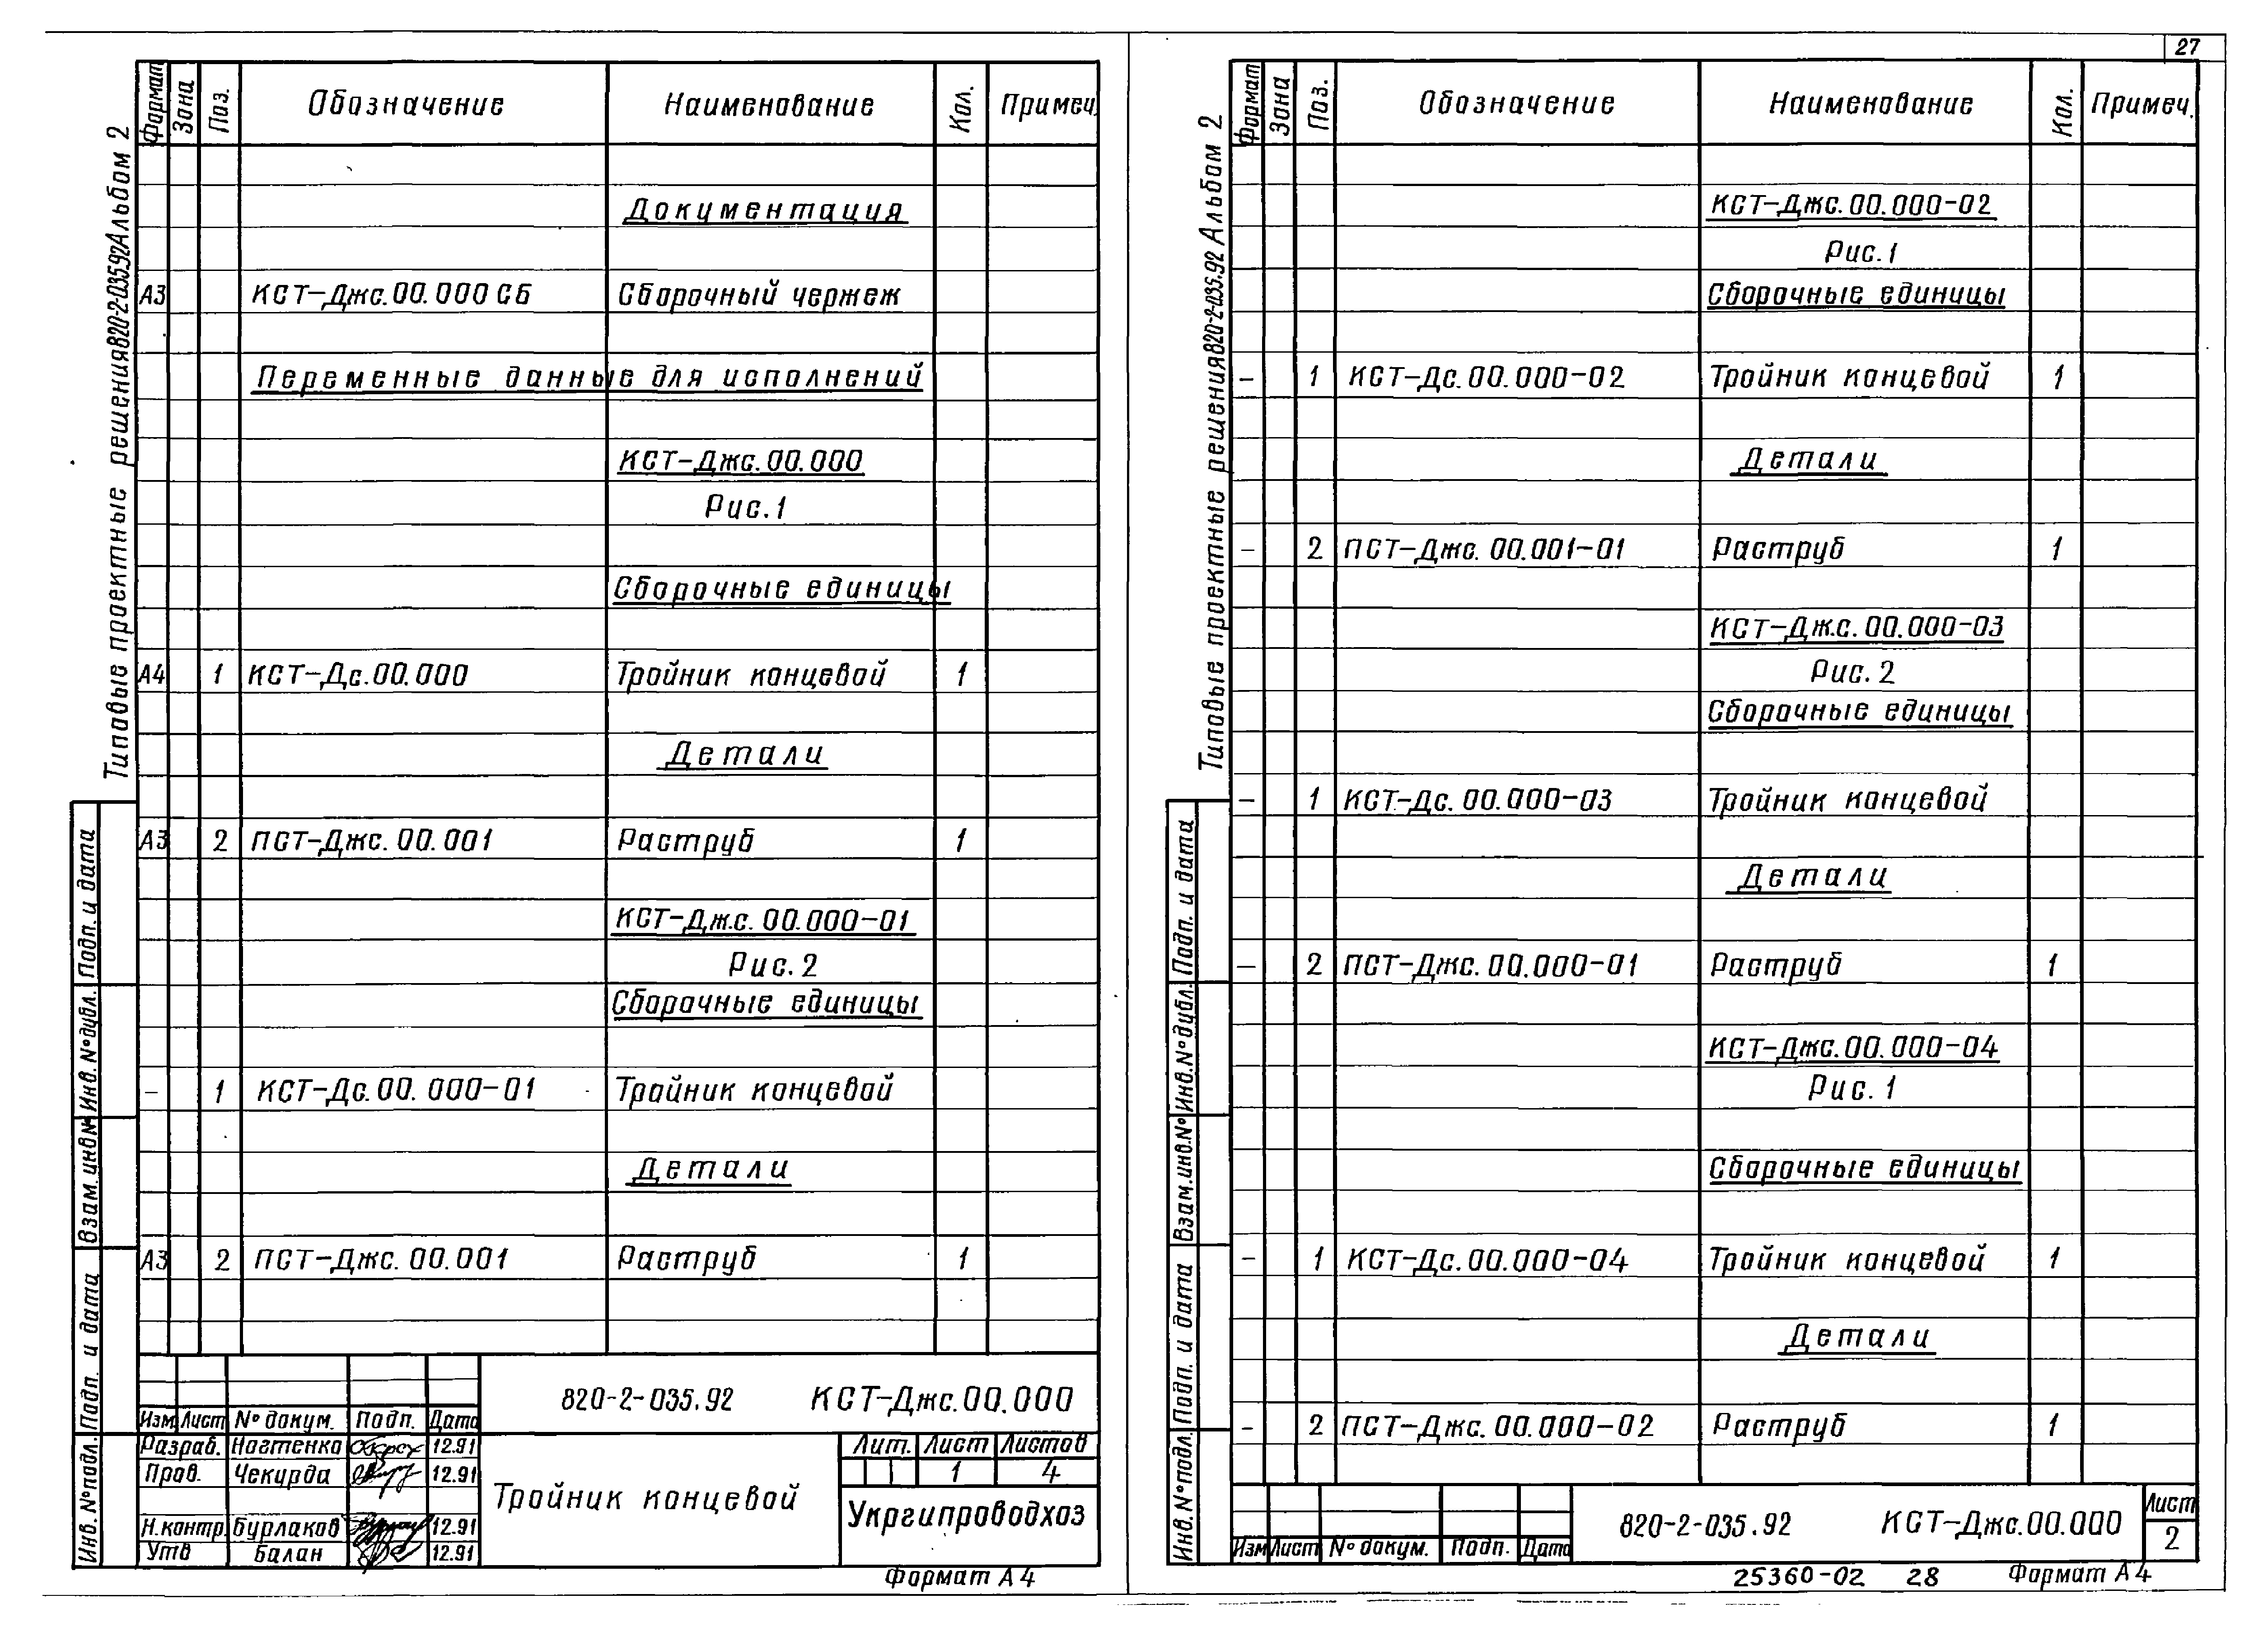 27
Типовые проектные решения 820-2-035.92 Альбом 2
Формат Зона Поз. Обозначение Наименование Кол. Примеч.
Документация
А3 КСТ-Джс.00.000 СБ Сборочный чертеж
Переменные данные для исполнений
КСТ-Джс.00.000
Рис.1
Сборочные единицы
А4 1 КСТ-Дс.00.000 Тройник концевой 1
Детали
А3 2 ПСТ-Джс.00.001 Раструб 1
КСТ-Джс.00.000-01
Рис.2
Сборочные единицы
- 1 КСТ-Дс.00.000-01 Тройник концевой
Детали
А3 2 ПСТ-Джс.00.001 Раструб 1
Подп. и дата
Инв.№дубл.
Взам.инв№
Подп. и дата
Инв.№подл.
820-2-035.92 КСТ-Джс.00.000
Изм Лист № докум. Подп. Дата
Разраб. Ногтенко 12.91
Пров. Чекурда 12.91
Н.контр. Бурлаков 12.91
Утв Балан 12.91
Тройник концевой
Лит. Лист Листов
1 4
Укргипроводхоз
Формат А4
Типовые проектные решения 820-2-035.92 Альбом 2
Формат Зона Поз. Обозначение Наименование Кол. Примеч.
КСТ-Джс.00.000-02
Рис.1
Сборочные единицы
- 1 КСТ-Дс.00.000-02 Тройник концевой 1
Детали
- 2 ПСТ-Джс.00.001-01 Раструб 1
КСТ-Джс.00.000-03
Рис.2
Сборочные единицы
- 1 КСТ-Дс.00.000-03 Тройник концевой
Детали
- 2 ПСТ-Джс.00.000-01 Раструб 1
КСТ-Джс.00.000-04
Рис.1
Сборочные единицы
- 1 КСТ-Дс.00.000-04 Тройник концевой 1
Детали
- 2 ПСТ-Джс.00.000-02 Раструб 1
Подп. и дата
Инв.№дубл.
Взам.инв.№
Подп. и дата
Инв.№подл.
Изм Лист № докум. Подп. Дата
820-2-035.92 КСТ-Джс.00.000
Лист
2
25360-02 28 Формат А4